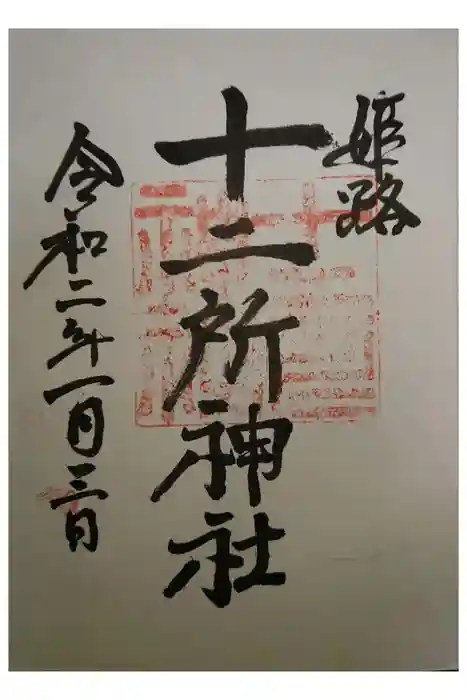 姫路
十二所神社
令和二年一月三日